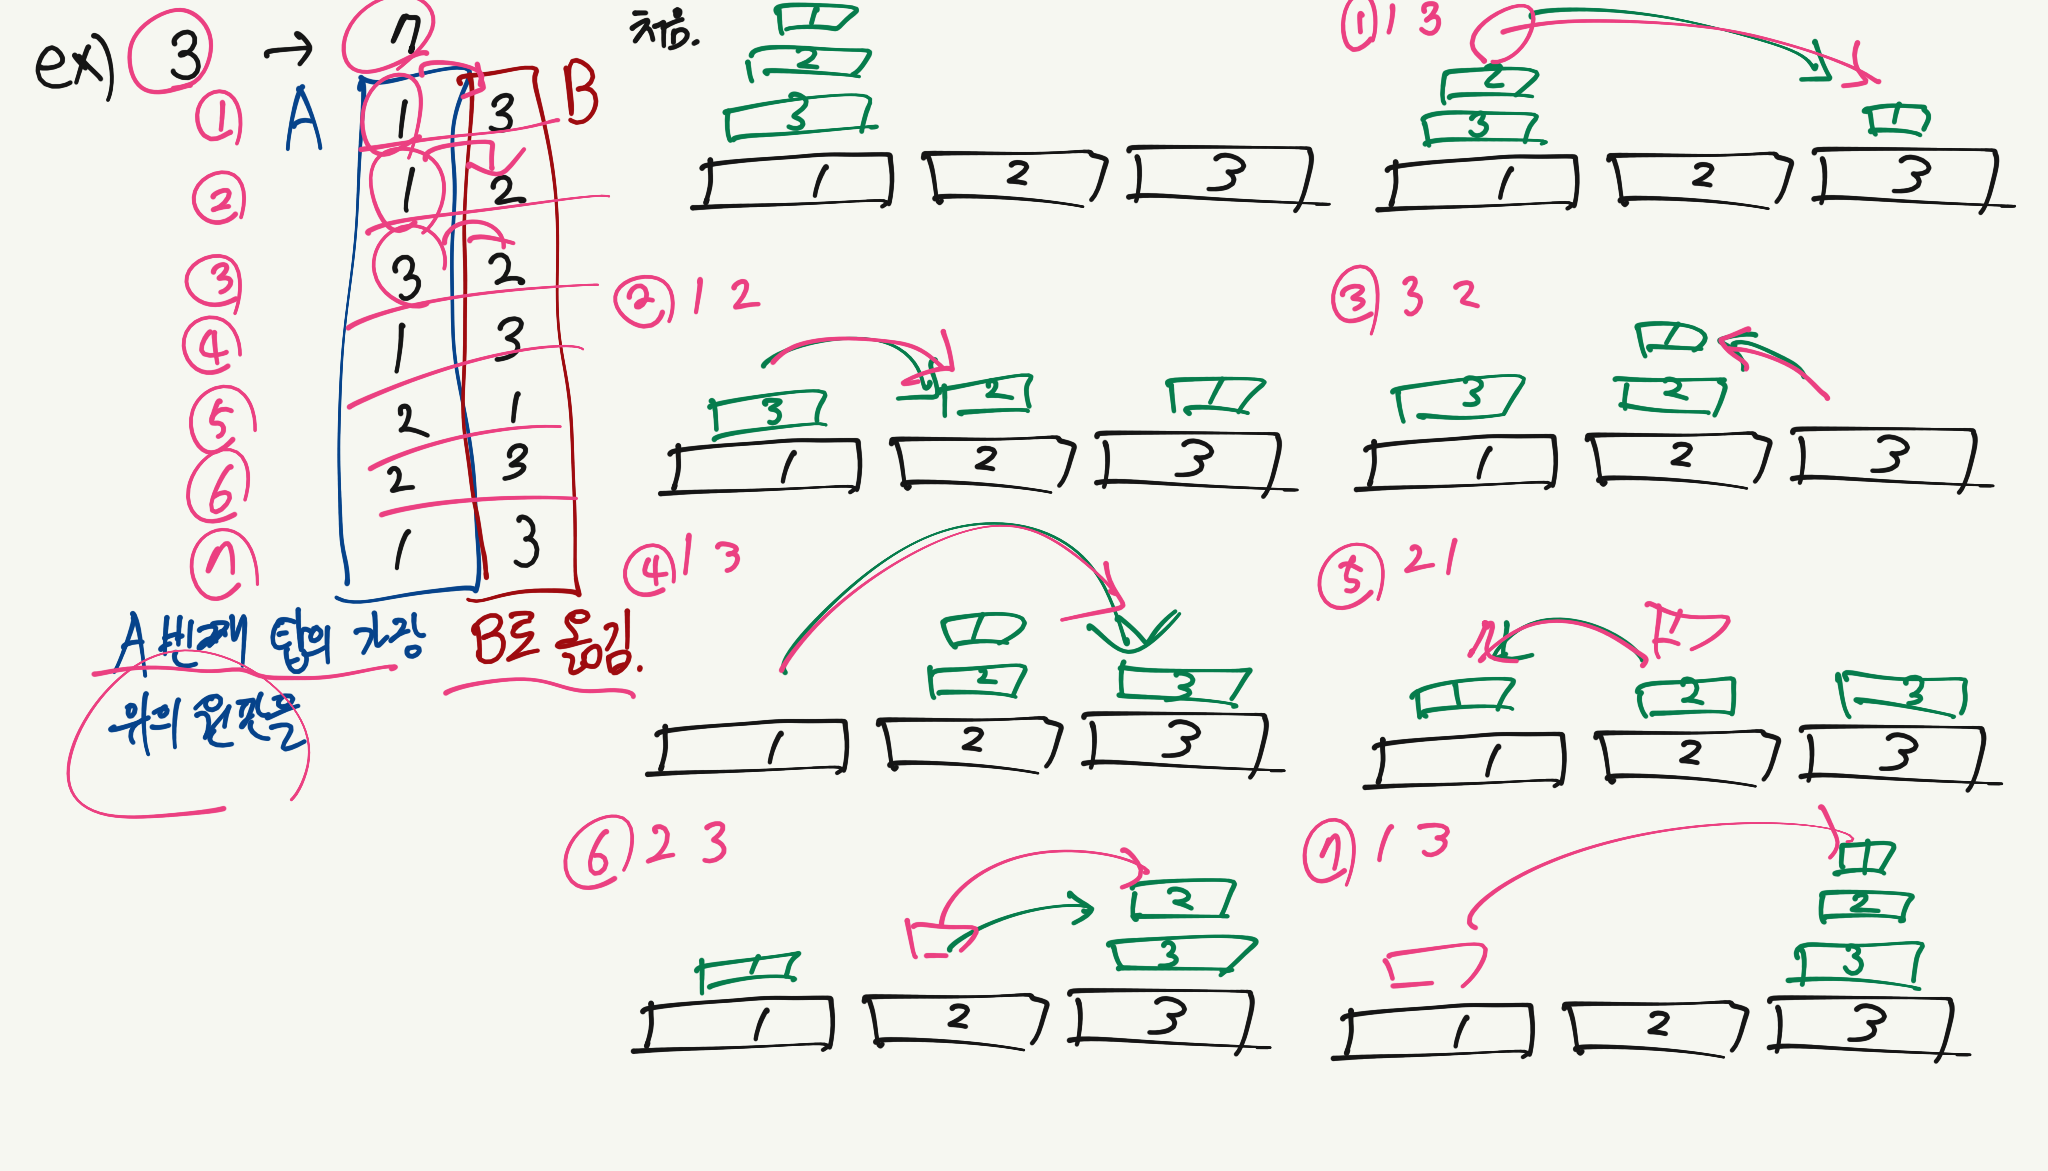 ex) 3 → 7
① A 1 3 B
② 1 2
③ 3 2
④ 1 3
⑤ 2 1
⑥ 2 3
⑦ 1 3
A번째 탑의 가장
위의 원판을
B로 옮김.
처음.
1
2
3
1 2 3
① 1 3
2
3 1
1 2 3
② 1 2
3 2 1
1 2 3
③ 3 2
1
3 2
1 2 3
④ 1 3
1
2 3
1 2 3
⑤ 2 1
1
1 2 3
1 2 3
⑥ 2 3
2
1 3
1 2 3
⑦ 1 3
1
2
3
1 2 3